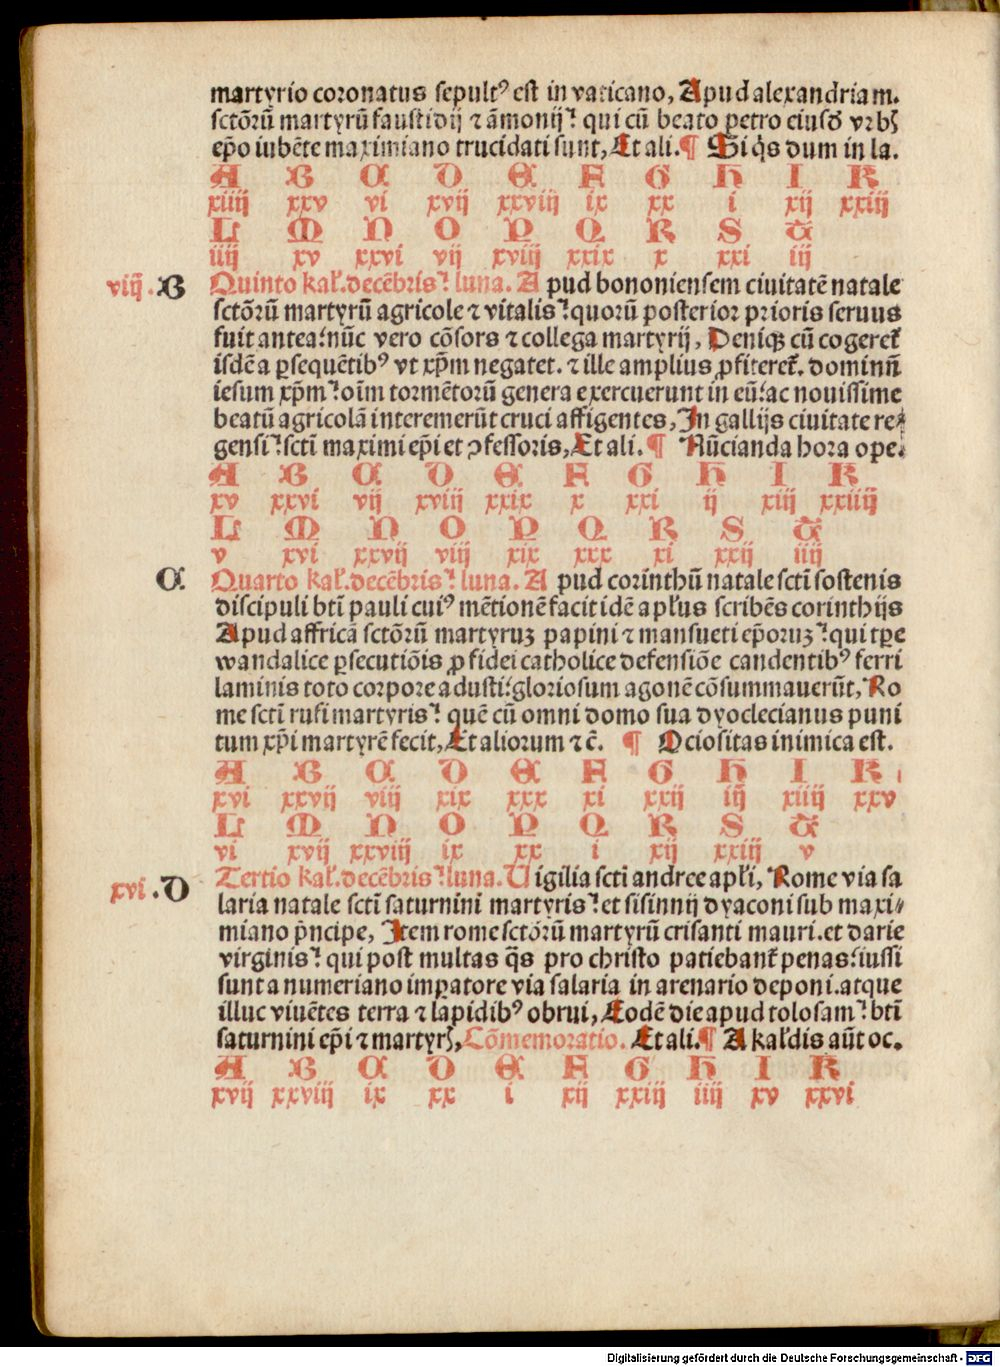 martyrio coronatus sepultꝰ est in vaticano, Apud alexandriam.
sctōrū martyrū faustidij ⁊ āmonij: qui cū beato petro eiusd̄ vrbꝭ
ep̄o iubēte maximiano trucidati sunt, Et ali. ¶ Si q̄s dum in la.
A B C D E F G H I K
xiiij xxv vi xvij xxviij ix xx i xij xxiij
L M N O P Q R S T
iiij xv xxvi vij xviij xxix x xxi iij
viij. B Quinto kaƚ. decēbris: luna. A pud bononiensem ciuitatē natale
sctōrū martyrū agricole ⁊ vitalis: quorū posterior prioris seruus
fuit antea: nūc vero cōsors ⁊ collega martyrij, Deniqꝫ cū cogeret᷑
isdē a ꝑsequētibꝰ vt xp̄m negatet. ⁊ ille amplius ꝓfiteret᷑. dominū
iesum xp̄m: oīm tormētorū genera exercuerunt in eū: ac nouissime
beatū agricolā interemerūt cruci affigentes, In gallijs ciuitate re⸗
gensi: scti maximi ep̄i et ꝯfessoris, Et ali. ¶ Nūcianda hora ope.
A B C D E F G H I K
xv xxvi vij xviij xxix x xxi ij xiij xxiiij
L M N O P Q R S T
v xvi xxvij viij xix xxx xi xxij iiij
C Quarto kaƚ. decēbris: luna. A pud corinthū natale scti sostenis
discipuli bti pauli cuiꝰ mētionē facit idē apƚus scribēs corinthijs
Apud affricā sctōrū martyruꝫ papini ⁊ mansueti ep̄oruꝫ: qui tꝑe
wandalice ꝑsecutiōis ꝓ fidei catholice defensiōe candentibꝰ ferri
laminis toto corpore adusti: gloriosum agonē cōsummauerūt, Ro
me scti rufi martyris: quē cū omni domo sua dyoclecianus puni
tum xp̄i martyrē fecit, Et aliorum ⁊ c̄. ¶ Ociositas inimica est.
A B C D E F G H I K
xvi xxvij viij xix xxx xi xxij iij xiiij xxv
L M N O P Q R S T
vi xvij xxviij ix xx i xij xxiij v
xvi. D Tertio kaƚ. decēbris: luna. U igilia scti andree apƚi, Rome via sa
laria natale scti saturnini martyris: et sisinnij dyaconi sub maxi⸗
miano pn̄cipe, Item rome sctōrū martyrū crisanti mauri. et darie
virginis: qui post multas q̄s pro christo patiebant᷑ penas: iussi
sunt a numeriano imꝑatore via salaria in arenario deponi. atque
illuc viuētes terra ⁊ lapidibꝰ obrui, Eodē die apud tolosam: bti
saturnini ep̄i ⁊ martyrꝭ, Cōmemoratio. Et ali. ¶ A kaƚdis aūt oc.
A B C D E F G H I K
xvij xxviij ix xx i xij xxiij iiij xv xxvi
Digitalisierung gefördert durch die Deutsche Forschungsgemeinschaft - DFG